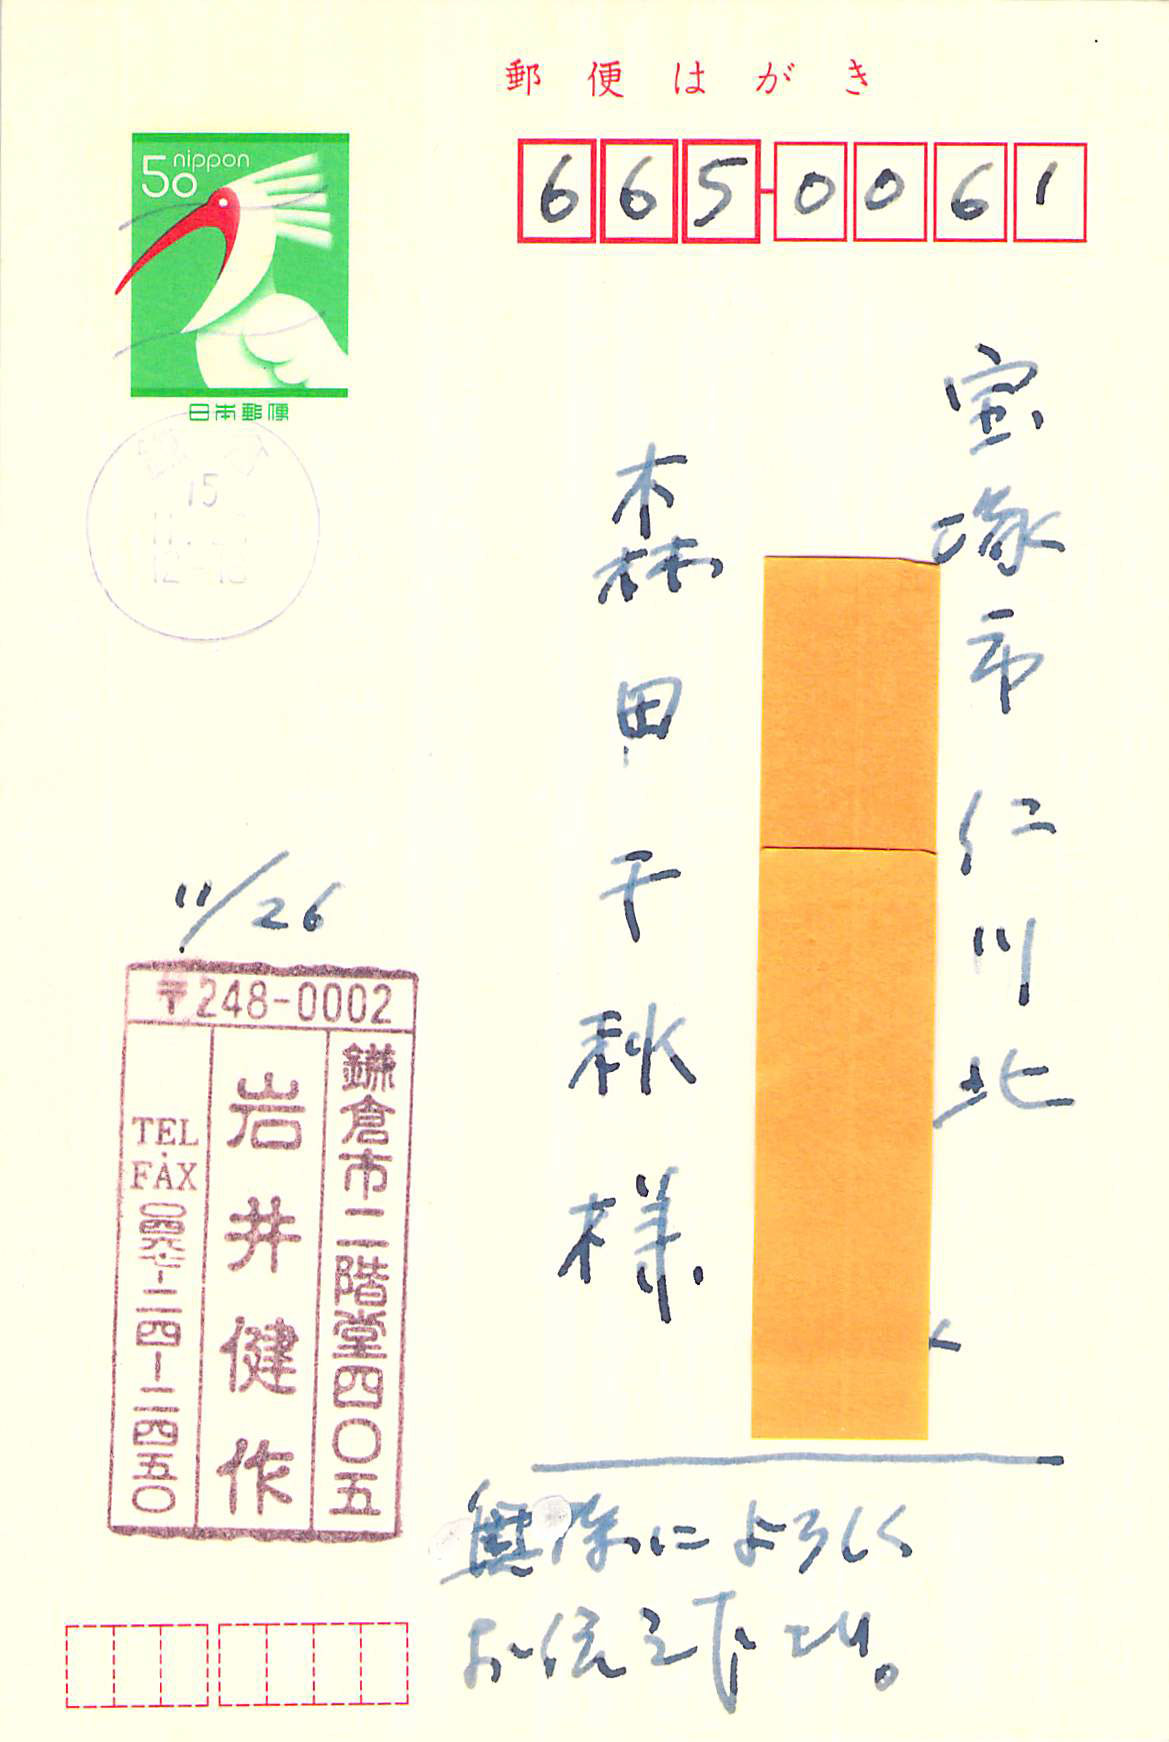 郵便はがき
50 nippon
日本郵便
665-0061
宝塚市仁川北
森田千秋様
15
11/26
〒248-0002
鎌倉市二階堂四〇五
岩井健作
TEL・FAX 〇四六七-二四-二四五〇
によろしく
お伝え下さい。